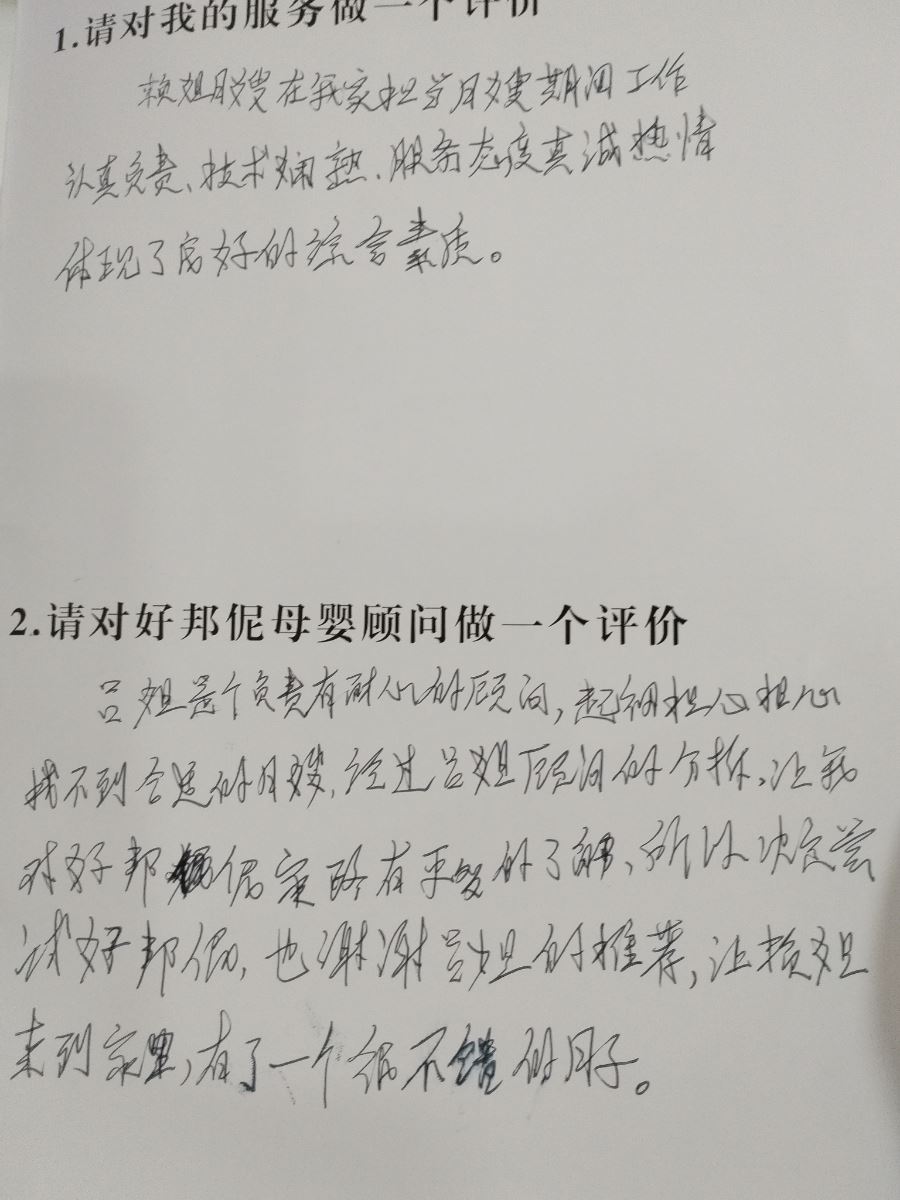 1.请对我的服务做一个评价
赖姐月嫂在我家担当月嫂期间工作
认真负责、技术娴熟、服务态度真诚热情
体现了良好的综合素质。
2.请对好邦伲母婴顾问做一个评价
吕姐是个负责有耐心的顾问,起初担心担心
找不到合适的月嫂,经过吕姐顾问的分析,让我
对好邦伲家政有更多的了解、所以决定尝
试好邦伲,也谢谢吕姐的推荐,让赖姐
来到家里,有了一个很不错的月子。